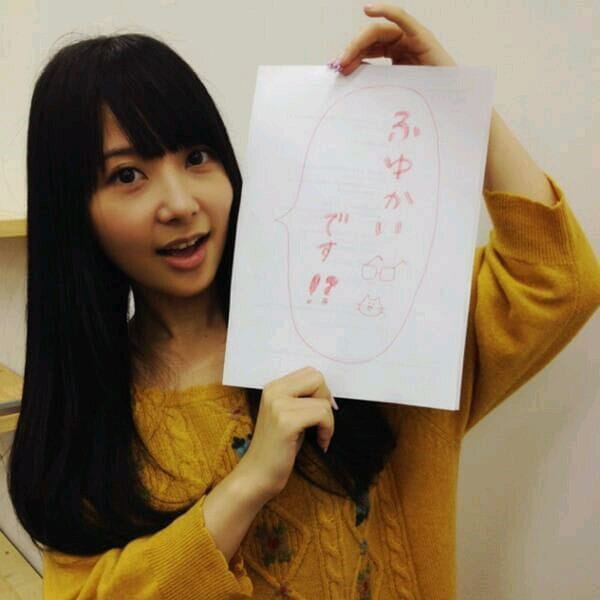 ふゆかい
です!?